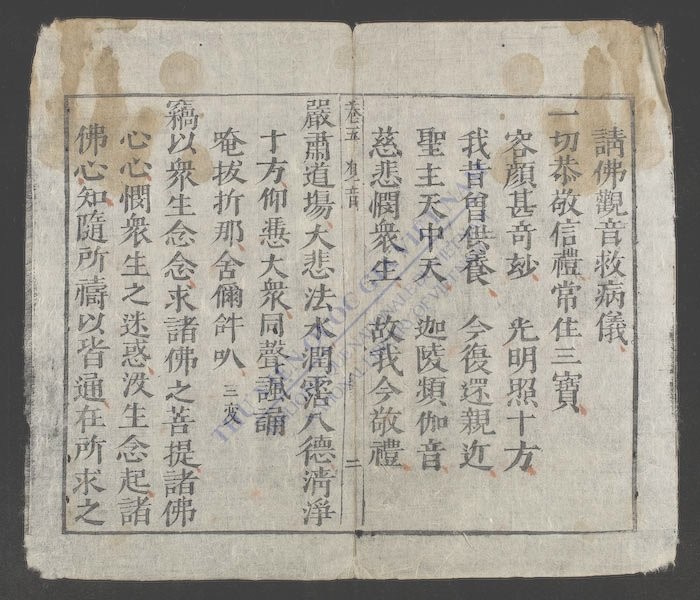 請佛觀音救病儀
一切恭敬信禮常住三寶
容顏甚奇玅 光明照十方
我昔曾供養 今復還親近
聖主天中天 迦陵頻伽音
慈悲憫衆生 故我今敬禮
卷五 觀音 二
嚴肅道場大悲法水潤霑八德淸淨
十方仰慿大衆同聲諷誦
唵拔折那舍儞吽叭 三变
竊以衆生念念求諸佛之菩提諸佛
心心憫衆生之迷惑没生念起諸
佛心知隨所禱以皆通在所求之
THƯ VIỆN QUỐC GIA VIỆT NAM
NATIONAL LIBRARY OF VIETNAM